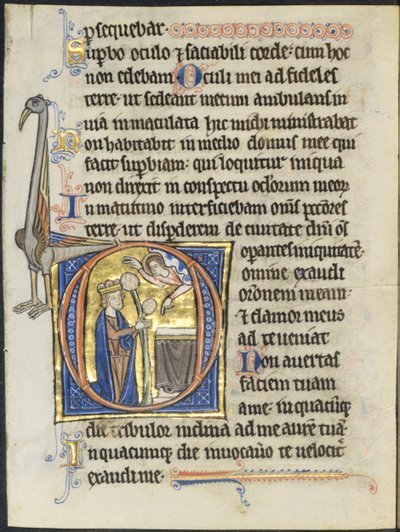 psequebar.
Supbo oculo ⁊ saciabili corde: cum hoc
non edebam. Oculi mei ad fideles
terre. ut sedeant mecum ambulans in
uia inmaculata hic michi ministrabat
Non habitabit in medio domus mee qui
facit supbiam: qui loquitur iniqua
non direxit in conspectu oclorum meor
In matutino interficiebam oms pctores
terre. ut disperderem de ciuitate dni os
opantes iniquitatē.
Domine exaudi
orōnem meam.
⁊ clamor meus
ad te ueniat
Non auertas
faciem tuam
a me. in quacūqȝ
die tribulor inclina ad me aurē tuā.
In quacumqȝ die inuocauo te uelocit
exaudi me.